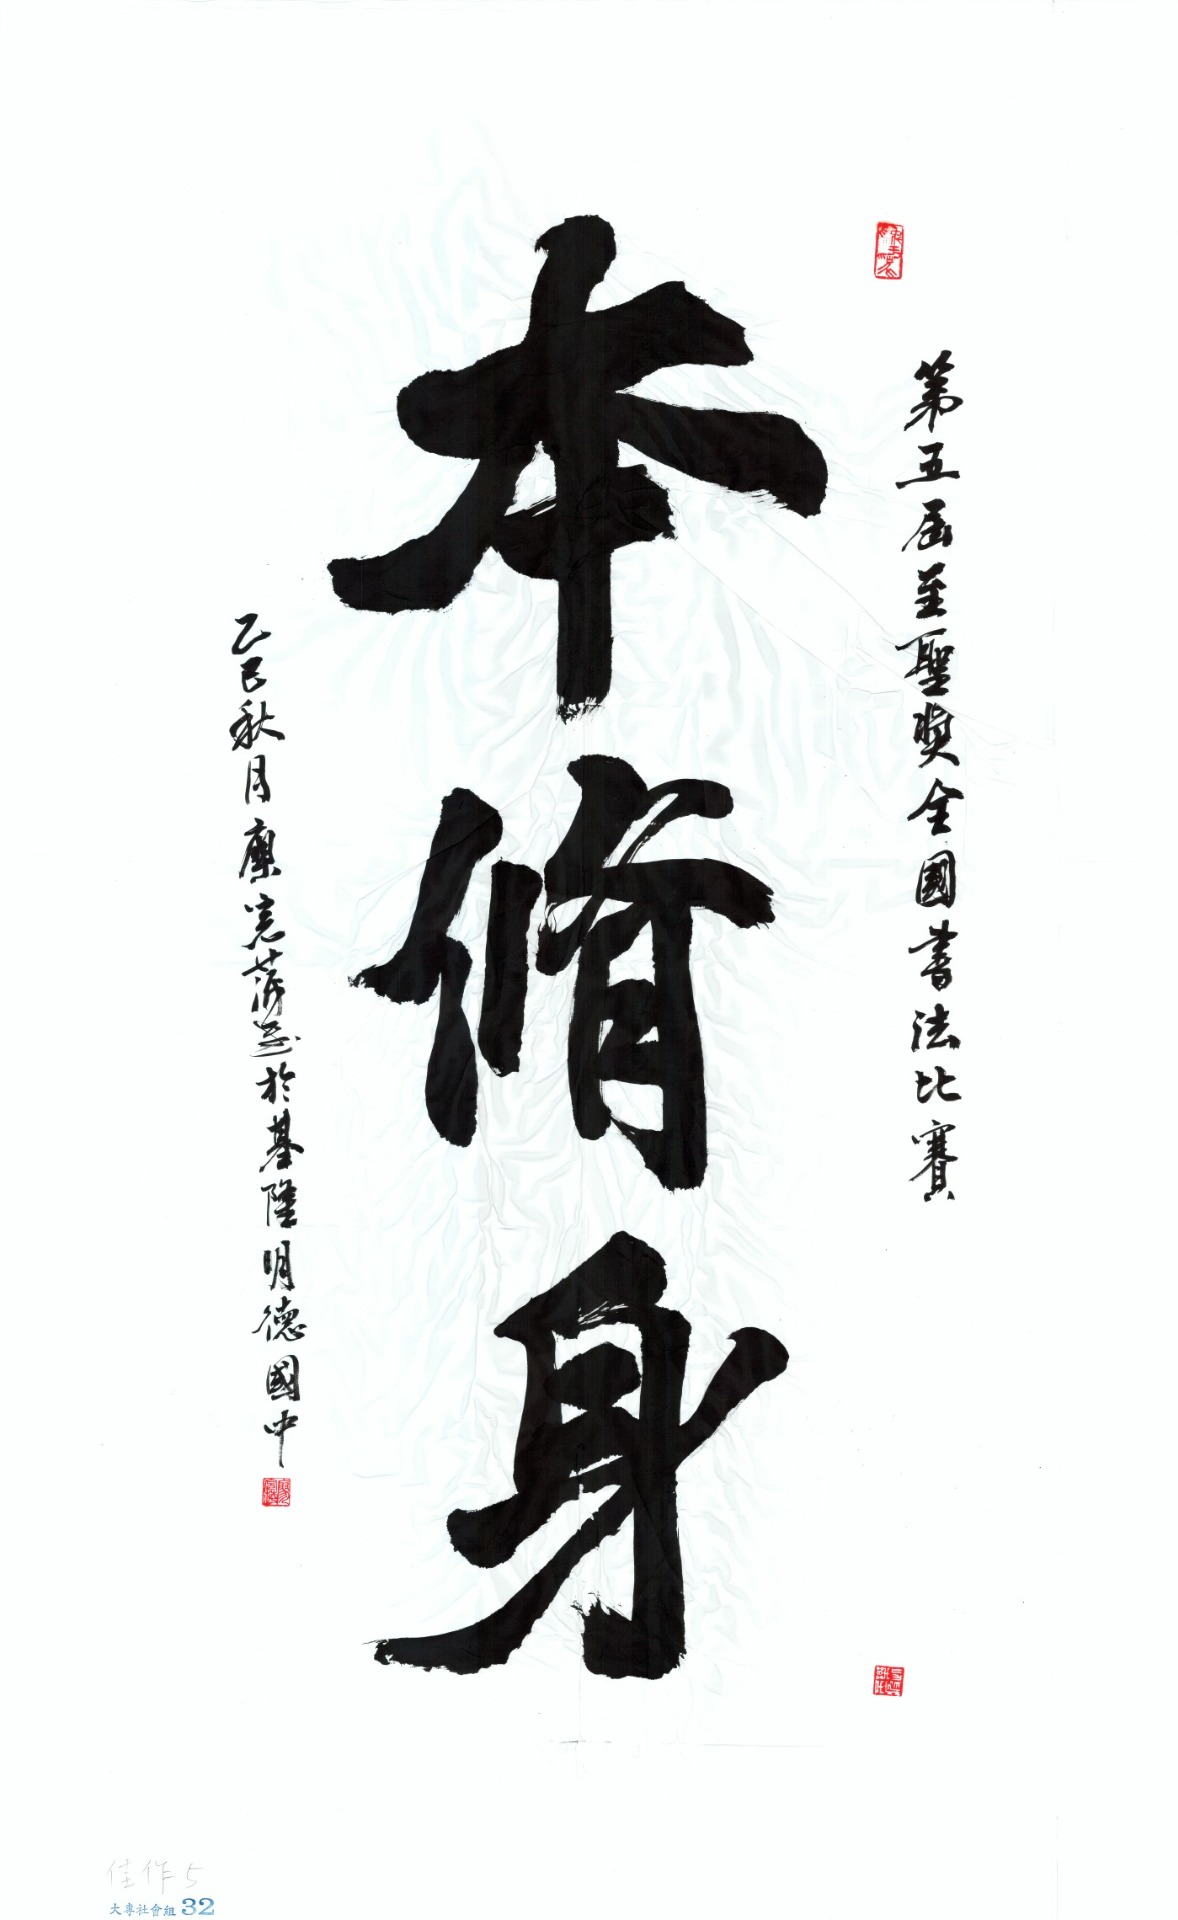 第五屆至聖獎全國書法比賽
本脩身
乙巳秋月廖於基隆明德國中
佳作5
大專社會組 32